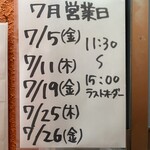 7月営業日
7/5(金)
7/11(木)
7/19(金)
7/25(木)
7/26(金)
11:30
〜
15:00
ラストオーダー